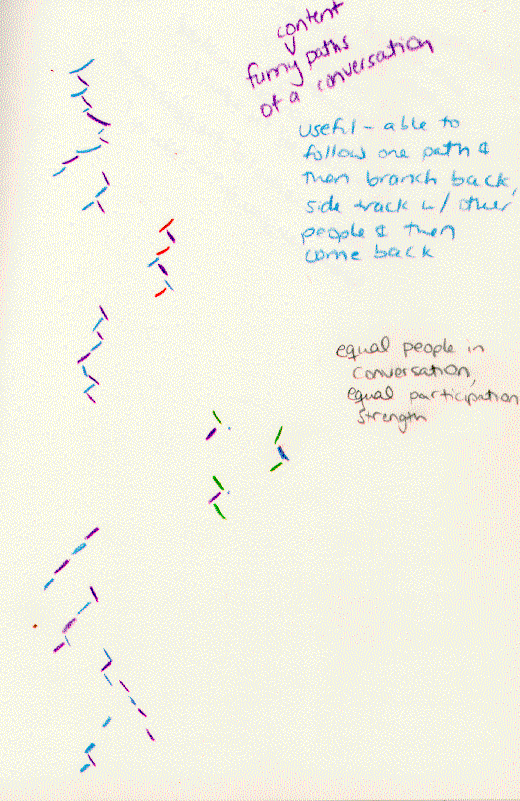 content
funny paths
of a conversation
useful - able to
follow one path &
then branch back,
side track w/ other
people & then
come back
equal people in
conversation,
equal participation
strength